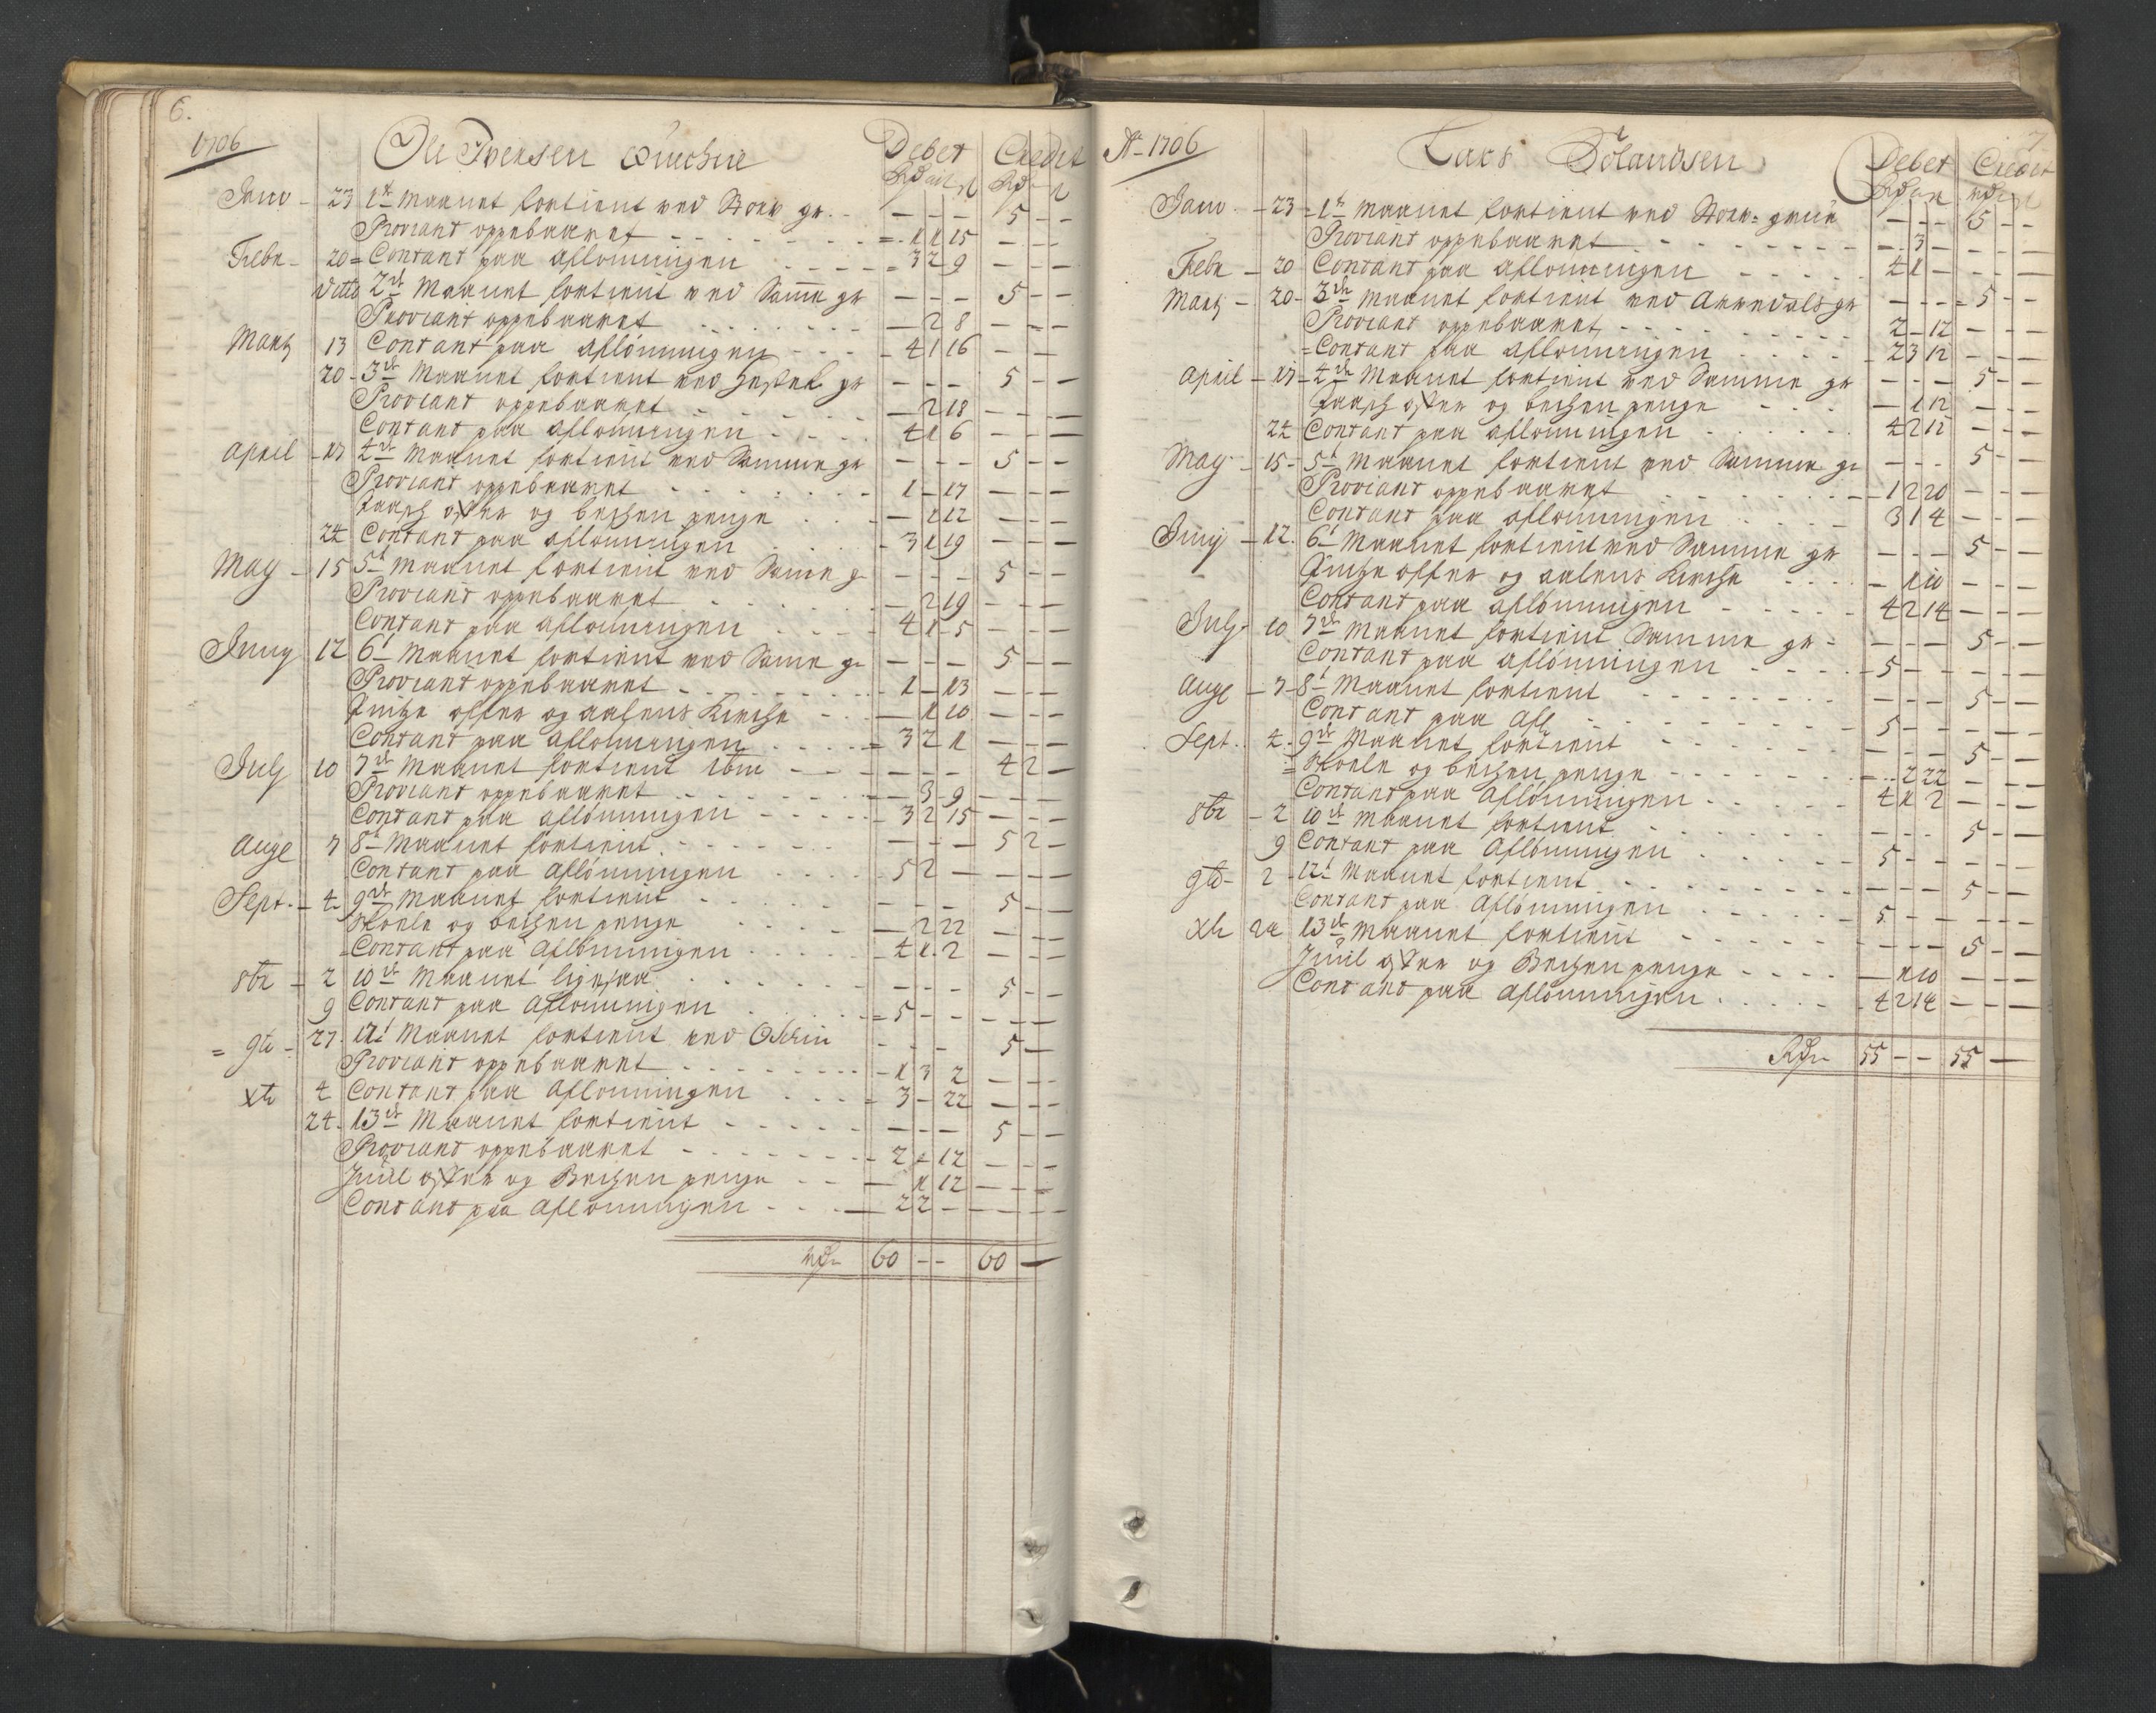 6.
1706
Ole Iversen Debet Credit
Janv - 23 1t Maanet fortient ved Stor gr. - - - 5 - -
Proviant oppebaaret - 1 1 15 - - -
Febr - 20 Contant paa aflonningen - 3 2 9 - - -
ditto 2de Maanet fortient ved Samme gr - - - 5 - -
Proviant oppebaaret - 2 8 - - -
Marty 13 Contant paa aflönningen - 4 1 16 - - -
20 - 3de Maanet fortient ved gr - - - 5 - -
Proviant oppebaaret - 2 18 - - -
Contant paa aflonningen 4 1 6 - - -
April - 17 4de Maanet fortient ved Samme gr - - - 5 - -
Proviant oppebaaret 1 - 17 - - -
offer og bechen penge - 1 12 - - -
24 Contant paa aflonningen - 3 1 19 - - -
May - 15 5t Maanet fortient ved Samme g - - - 5 - -
Proviant oppebaaret - 2 19 - - -
Contant paa aflonningen 4 1 5 - - -
Juny 12 6t Maanet fortient ved Samme g - - - 5 - -
Proviant oppebaaret 1 - 13 - - -
offer og aalens Kirche - 1 10 - - -
Contant paa aflonningen 3 2 1 - - -
July 10 7de Maanet fortient ibm - - - 4 2 -
Proviant oppebaaret - 3 9 - - -
Contant paa aflönningen 3 2 15 - - -
Auge 7 8t Maanet fortient - - - 5 2 -
Contant paa Aflönningen 5 2 - - - -
Sept. - 4 9de Maanet fortient - - - 5 - -
Skoele og bechen penge - 2 22 - - -
Contant paa Aflönningen 4 1 2 - - -
8br - 2 10de Maanet ligesaa - - - 5 - -
9 Contant paa Aflonningen - 5 - - - - -
9br - 27 12t Maanet fortient ved - - - 5 -
Proviant oppebaaret - 1 3 2 - - -
xbr 4 Contant paa Aflonningen 3 - 22 - - -
24 - 13de Maanet fortient - - - 5 - -
Proviant oppebaaret - 2 - 12 - - -
Juul offer og Bechen penge - 1 12 - - -
Contant paa Aflonningen - 2 2 - - - -
Rdr 60 - - 60 -
7
Ao 1706
Lars Debet Credit
Janv - 23 - 1t Maanet fortient ved Stor- - - - 5 - -
Proviant oppebaaret - 3 - - - -
Febr - 20 Contant paa aflonningen 4 1 - - - -
Marty - 20 - 3de Maanet fortient ved Arrendals gr - - - 5 - -
Proviant oppebaaret 2 - 12 - - -
Contant paa aflonningen - 2 3 12 - - -
April - 17 - 4de Maanet fortient ved Samme gr - - - 5 - -
offer og bechen penge - 1 12 - - -
24 Contant paa aflonningen 4 2 12 - - -
May - 15 - 5t Maanet fortient ved Samme gr - - - 5 - -
Proviant oppebaaret - 1 2 20 - - -
Contant paa aflonningen 3 1 4 - - -
Juny - 12. 6t Maanet fortient ved Samme gr - - - 5 - -
offer og aalens Kirche - 1 10 - - -
Contant paa aflönningen 4 2 14 - - -
July - 10 7de Maanet fortient Samme gr - - - - 5 - -
Contant paa aflönningen - 5 - - - - -
Auge - 7 - 8t Maanet fortient - - - 5 - -
Contant paa Afl 5 - - - - -
Sept. 4 - 9de Maanet fortient - - - 5 - -
Skoele og bechen penge - 2 22 - - -
Contant paa Aflönningen 4 1 2 - - -
8br - 2 10de Maanet fortient - - - 5 - -
9 Contant paa Aflönningen 5 - - - - -
9br - 2 - 12t Maanet fortient - - - 5 - -
Contant paa Aflönningen 5 - - - - -
xbr 24 13de Maanet fortient - - - 5 - -
Juul offer og Bechen penge - 1 10 - - -
Contant paa Aflönningen 4 2 14 - - -
Rdr 55 - - 55 -